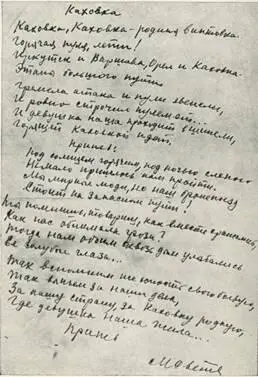 Каховка
Каховка, Каховка – родная винтовка –
Горячая пуля, лети!
Иркутск и Варшава, Орел и Каховка –
Этапы большого пути
Гремела атака и пули звенели,
И ровно строчил пулемет...
И девушка наша проходит в шинели,
Горящей Каховкой идет.
Припев:
Под солнцем горячим, под ночью слепою
Немало пришлось нам пройти.
Мы мирные люди, но наш бронепоезд
Стоит на запасном пути!
Ты помнишь, товарищ, как вместе сражались,
Как нас обнимала гроза?
Тогда нам обоим сквозь дым улыбались
Ее голубые глаза...
Так вспомним же юность свою боевую,
Так выпьем за наши дела,
За нашу страну, за Каховку родную,
Где девушка наша жила...
Припев
М Светлов